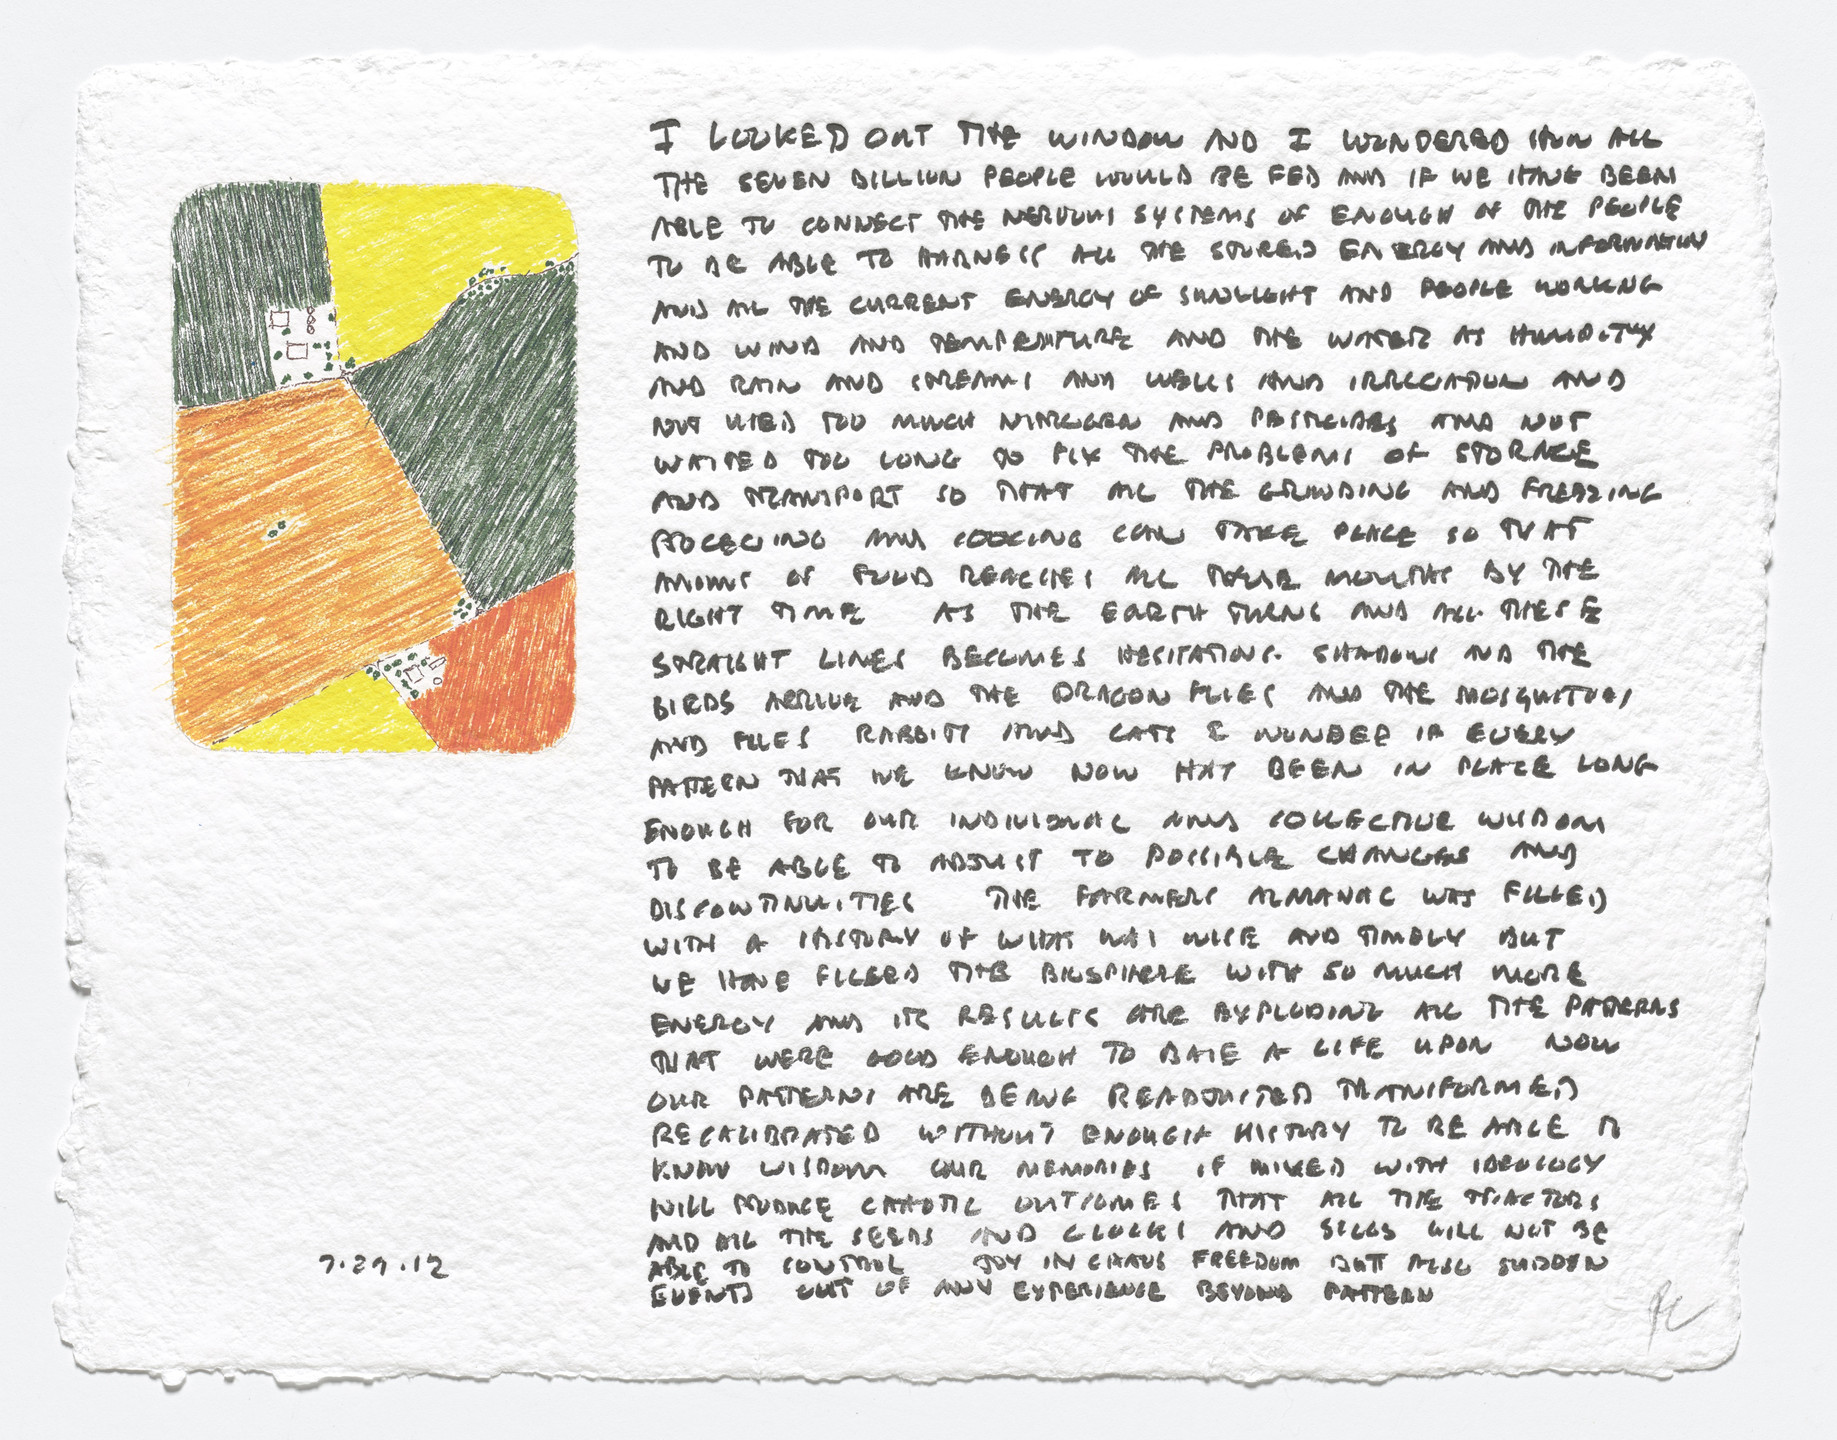 I LOOKED OUT THE WINDOW AND I WONDERED HOW ALL
THE SEVEN BILLION PEOPLE WOULD BE FED AND IF WE HAVE BEEN
ABLE TO CONNECT THE NERVOUS SYSTEMS OF ENOUGH OF THE PEOPLE
TO BE ABLE TO HARNESS ALL THE STORED ENERGY AND INFORMATION
AND ALL THE CURRENT ENERGY OF SUNLIGHT AND PEOPLE WORKING
AND WIND AND TEMPERATURE AND THE WATER AS HUMIDITY
AND RAIN AND STREAMS AND WELLS AND IRRIGATION AND
NOT USED TOO MUCH NITROGEN AND PESTICIDES AND NOT
WAITED TOO LONG TO FIX THE PROBLEMS OF STORAGE
AND TRANSPORT SO THAT ALL THE GRINDING AND FREEZING
PROCESSING AND COOKING CAN TAKE PLACE SO THAT
AMOUNT OF FOOD REACHES ALL THESE MOUTHS BY THE
RIGHT TIME AS THE EARTH TURNS AND ALL THESE
STRAIGHT LINES BECOMES HESITATING SHADOWS AND THE
BIRDS ARRIVE AND THE DRAGON FLIES AND THE MOSQUITOES
AND FLIES RABBITS AND CATS I WONDER IF EVERY
PATTERN THAT WE KNOW NOW HAS BEEN IN PLACE LONG
ENOUGH FOR OUR INDIVIDUAL AND COLLECTIVE WISDOM
TO BE ABLE TO ADJUST TO POSSIBLE CHANGES AND
DISCONTINUITIES THE FARMERS ALMANAC WAS FILLED
WITH A HISTORY OF WHAT WAS WISE AND TIMELY BUT
WE HAVE FILLED THE BIOSPHERE WITH SO MUCH MORE
ENERGY AND ITS RESULTS ARE EXPLODING ALL THE PATTERNS
THAT WERE GOOD ENOUGH TO BASE A LIFE UPON NOW
OUR PATTERNS ARE BEING READJUSTED TRANSFORMED
RECALIBRATED WITHOUT ENOUGH HISTORY TO BE ABLE TO
KNOW WISDOM OUR MEMORIES IF MIXED WITH IDEOLOGY
WILL PRODUCE CHAOTIC OUTCOMES THAT ALL THE TRACTORS
AND ALL THE SEEDS AND CLOCKS AND SILOS WILL NOT BE
ABLE TO CONTROL JOY IN CHAOS FREEDOM BUT ALSO SUDDEN
EVENTS OUT OF ANY EXPERIENCE BEYOND PATTERN
7.29.12